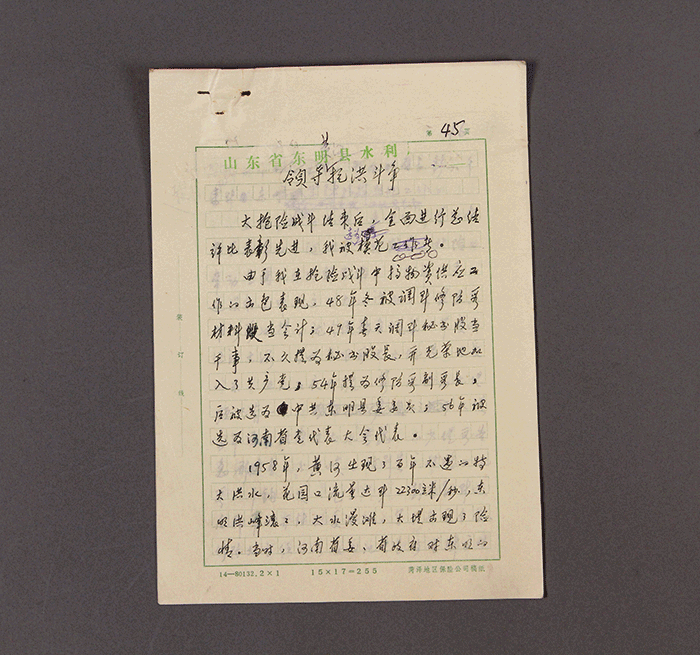 第 45 页
山东省东明县水利
领导抗洪斗争
大抢险战斗结束后，全面进行总结
评比表彰先进，我被模范
由于我在抢险战斗中搞物资供应工
作的出色表现，48年冬被调到修防段
材料股当会计；49年春又调到秘书股当
干事，不久提为秘书股长，并光荣地加
入了共产党；54年提为修防段副段长，
后被选为中共东明县委委员；56年被
选为河南省党代表大会代表。
1958年，黄河出现了百年不遇的特
大洪水，花园口流量达到22300立米/秒，东
明洪峰滚滚，大水漫滩，大堤出现了险
情。当时，河南省委、省政府对东明的
装订线
14—80132.2×1 15×17=255 菏泽地区保险公司稿纸